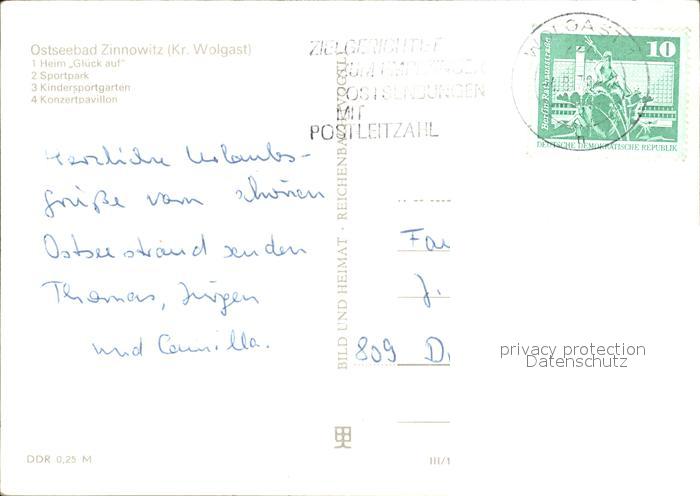 Ostseebad Zinnowitz (Kr. Wolgast)
1 Heim „Glück auf“
2 Sportpark
3 Kindersportgarten
4 Konzertpavillon
ZIELGERICHTET
ZUM EMPFÄNGER
POSTSENDUNGEN
MIT
POSTLEITZAHL
WOLGAST
10
Berlin-Rathausstraße
DEUTSCHE DEMOKRATISCHE REPUBLIK
Herzliche Urlaubs-
grüße vom schönen
Ostseestrand senden
Thomas, Jürgen
und Camilla.
BILD UND HEIMAT · REICHENBACH (VOGTL)
Fa
J.
809 D
privacy protection
Datenschutz
DDR 0,25 M
III/1